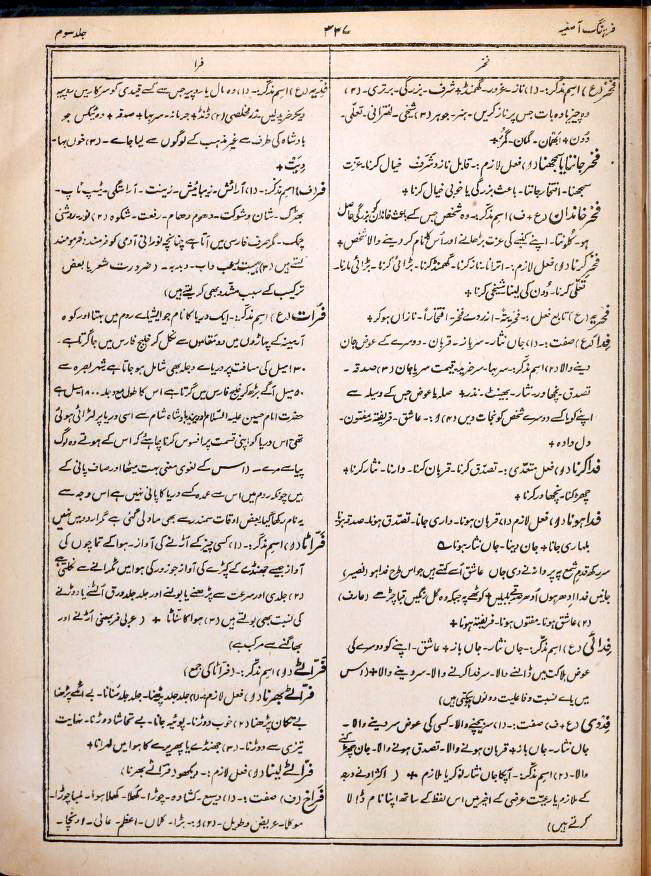 فرہنگ آصفیہ ۳۳۷ جلد سوم
فخر
فخر (ع) اسم مذکر:۔ (۱) ناز۔ غرور۔ گھمنڈ + شرف۔ بزرگی۔ برتری۔ (۲)
وہ چیز یا وہ بات جس پر ناز کریں۔ ہنر۔ جوہر (۳) شیخی۔ لفترانی۔ تعلّی۔
دُون +
فخر جاننا یا سمجھنا (و) فعل لازم:۔ قابل ناز و شرف خیال کرنا۔ عزت
سمجھنا۔ افتخار جاننا۔ باعث بزرگی یا خوبی خیال کرنا +
فخر خاندان (ع + ف) اسم مذکر:۔ وہ شخص جس کے باعث خاندان کو بزرگی حاصل
ہو۔ اپنے کنبے کی عزت بڑھانے اور اُس کا نام کر دینے والا شخص +
فخر کرنا (و) فعل لازم:۔ اترانا۔ ناز کرنا۔ گھمنڈ کرنا۔ بڑائی کرنا۔ بڑائی مارنا۔
تعلّی کرنا۔ دُون کی لینا۔ شیخی کرنا +
فخریہ (ع) تابع فعل:۔ ازروے فخر۔ افتخاراً۔ نازاں ہو کر +
فدا (ع) صفت:۔ (۱) جاں نثار۔ سرباز۔ قربان۔ دوسرے کے عوض جان
دینے والا (۲) اسم مذکر:۔ سربہا۔ سر خرید۔ قیمت سر یا جان (۳) صدقہ۔
تصدق۔ نچھاور۔ نثار۔ بھینٹ۔ نذر + صلہ یا عوض جس کے وسیلہ سے
اپنے کو یا کسے دوسرے شخص کو نجات دیں (۴) و:۔ عاشق۔ فریفتہ۔ مفتون۔
دل دادہ +
فدا کرنا (و) فعل متعدّی:۔ تصدّق کرنا۔ قربان کرنا۔ وارنا۔ نثار کرنا +
نچھاور کرنا +
فدا ہونا (و) فعل لازم (۱) قربان ہونا۔ واری جانا۔ تصدّق ہونا۔ صدقہ ہونا
بلہاری جانا + جان دینا۔ جاں نثار ہونا ۵
سر رکھ قدم شمع پہ پروانے نے دی جاں عاشق اُسے کہتے ہیں جو اس طرح فدا ہو (نصیر)
(عارف)
(۲) عاشق ہونا۔ مفتون ہونا۔ فریفتہ ہونا +
فدائی (ع) اسم مذکر:۔ جاں نثار۔ جاں باز + عاشق۔ اپنے کو دوسرے کی
عوض ہلاکت میں ڈالنے والا۔ سر فدا کرنے والا۔ سر دینے والا + (اس
میں یاے نسبت و فاعلیت دونوں ہوسکتی ہیں)
فدوی (ع + ف) صفت:۔ (۱) سر بیچنے والا۔ کسی کی عوض سر دینے والا۔
جاں نثار۔ جاں باز + قربان ہونے والا۔ تصدق ہونے والا۔ جان چھڑکنے
والا۔ (۲) اسم مذکر:۔ آپکا جاں نثار نوکر یا ملازم + (اکثر ادنے درجہ
کے ملازم یا رعیت عرضی کے اخیر میں اس لفظ کے ساتھ اپنا نام ڈالا
کرتے ہیں)
فرا
فدیہ (ع) اسم مذکر:۔ (۱) وہ مال یا روپیہ جس سے کسے قیدی کو سرکار میں روپیہ
دیکر خرید لیں۔ زر مخلصی (۲) ڈنڈ + جرمانہ۔ سربہا + صدقہ + وہ ٹیکس جو
بادشاہ کی طرف سے غیر مذہب کے لوگوں سے لیا جاے۔ (۳) خوں بہا۔
دِیت +
فر (ف) اسم مذکر:۔ (۱) آرائش۔ زیبائش۔ زینت۔ آراستگی۔ ٹیپ ٹاپ۔
بھڑک۔ شان و شوکت۔ دھوم دھام۔ رفعت۔ شکوہ (۲) نور۔ روشنی
چمک۔ مگر صرف فارسی میں آتا ہے چنانچہ نورانی آدمی کو فرمند و فرہ مند
کہتے ہیں (۳) ہیبت۔ رعب داب۔ دبدبہ۔ (ضرورت شعر یا بعض
ترکیب کے سبب مشدد بھی کر لیتے ہیں)
فرات (ع) اسم مذکر:۔ ایک دریا کا نام جو ایشیاے روم میں بہتا اور کوہ
آرمینہ کے پہاڑوں میں دو مقاموں سے نکل کر خلیج فارس میں جا گرتا ہے۔
۳۰ میل کی مسافت پر دریاے دجلہ بھی شامل ہو جاتا ہے شہر بصرہ سے
۵۰ میل آگے بڑھ کر خلیج فارس میں گرتا ہے اس کا طول مع دجلہ ۱۸۰۰ میل ہے
حضرت امام حسین علیہ السلام اور یزید بادشاہ شام سے اسی دریا پر لڑائی ہوئی
تھی اس دریا کو اپنی قسمت پر افسوس کرنا چاہئے کہ اس کے ہوتے وہ لوگ
پیاسے مرے۔ (اس کے لغوی معنی بہت میٹھا اور صاف پانی کے
ہیں چونکہ روم میں اس سے عمدہ کسے دریا کا پانی نہیں ہے اس وجہ سے
یہ نام رکھا گیا بعض اوقات سمندر سے بھی مراد لی گئی ہے مگر اردو میں نہیں
فرّاٹا (و) اسم مذکر:۔ (۱) کسی چیز کے اُڑنے کی آواز۔ ہوا کے تماچوں کی
آواز جیسے جھنڈے کے کپڑے کی آواز جو زور کی ہوا میں ٹکرانے سے نکلتی ہے
(۲) جلدی اور سرعت سے پڑھنے یا بولنے اور جلد جلد ورق اُلٹنے یا دوڑنے
کی نسبت بھی بولتے ہیں (۳) ہوا کا سنّاٹا + (عربی فر بمعنی اُڑنے اور
بھاگنے سے مرکب ہے)
فرّاٹے (و) اسم مذکر:۔ (فرّاٹا کی جمع)
فرّاٹے بھرنا (و) فعل لازم:۔ (۱) جلد جلد پڑھنا۔ جلد جلد سُنانا۔ بے اٹکے پڑھنا
بے تکان پڑھنا (۲) خوب دوڑنا۔ پوئیہ جانا۔ بے تحاشا دوڑنا۔ نہایت
تیزی سے دوڑنا۔ (۳) جھنڈے یا پھریرے کا ہوا میں لہرانا +
فرّاٹے لینا (و) فعل لازم:۔ دیکھو (فرّاٹے بھرنا)
فراخ (ف) صفت:۔ (۱) وسیع۔ کشادہ۔ چوڑا۔ کھلا۔ کھلا ہوا۔ لمبا چوڑا۔
موکلا۔ عریض و طویل۔ (۲) و:۔ بڑا۔ کلاں۔ اعظم۔ عالی۔ اونچا۔